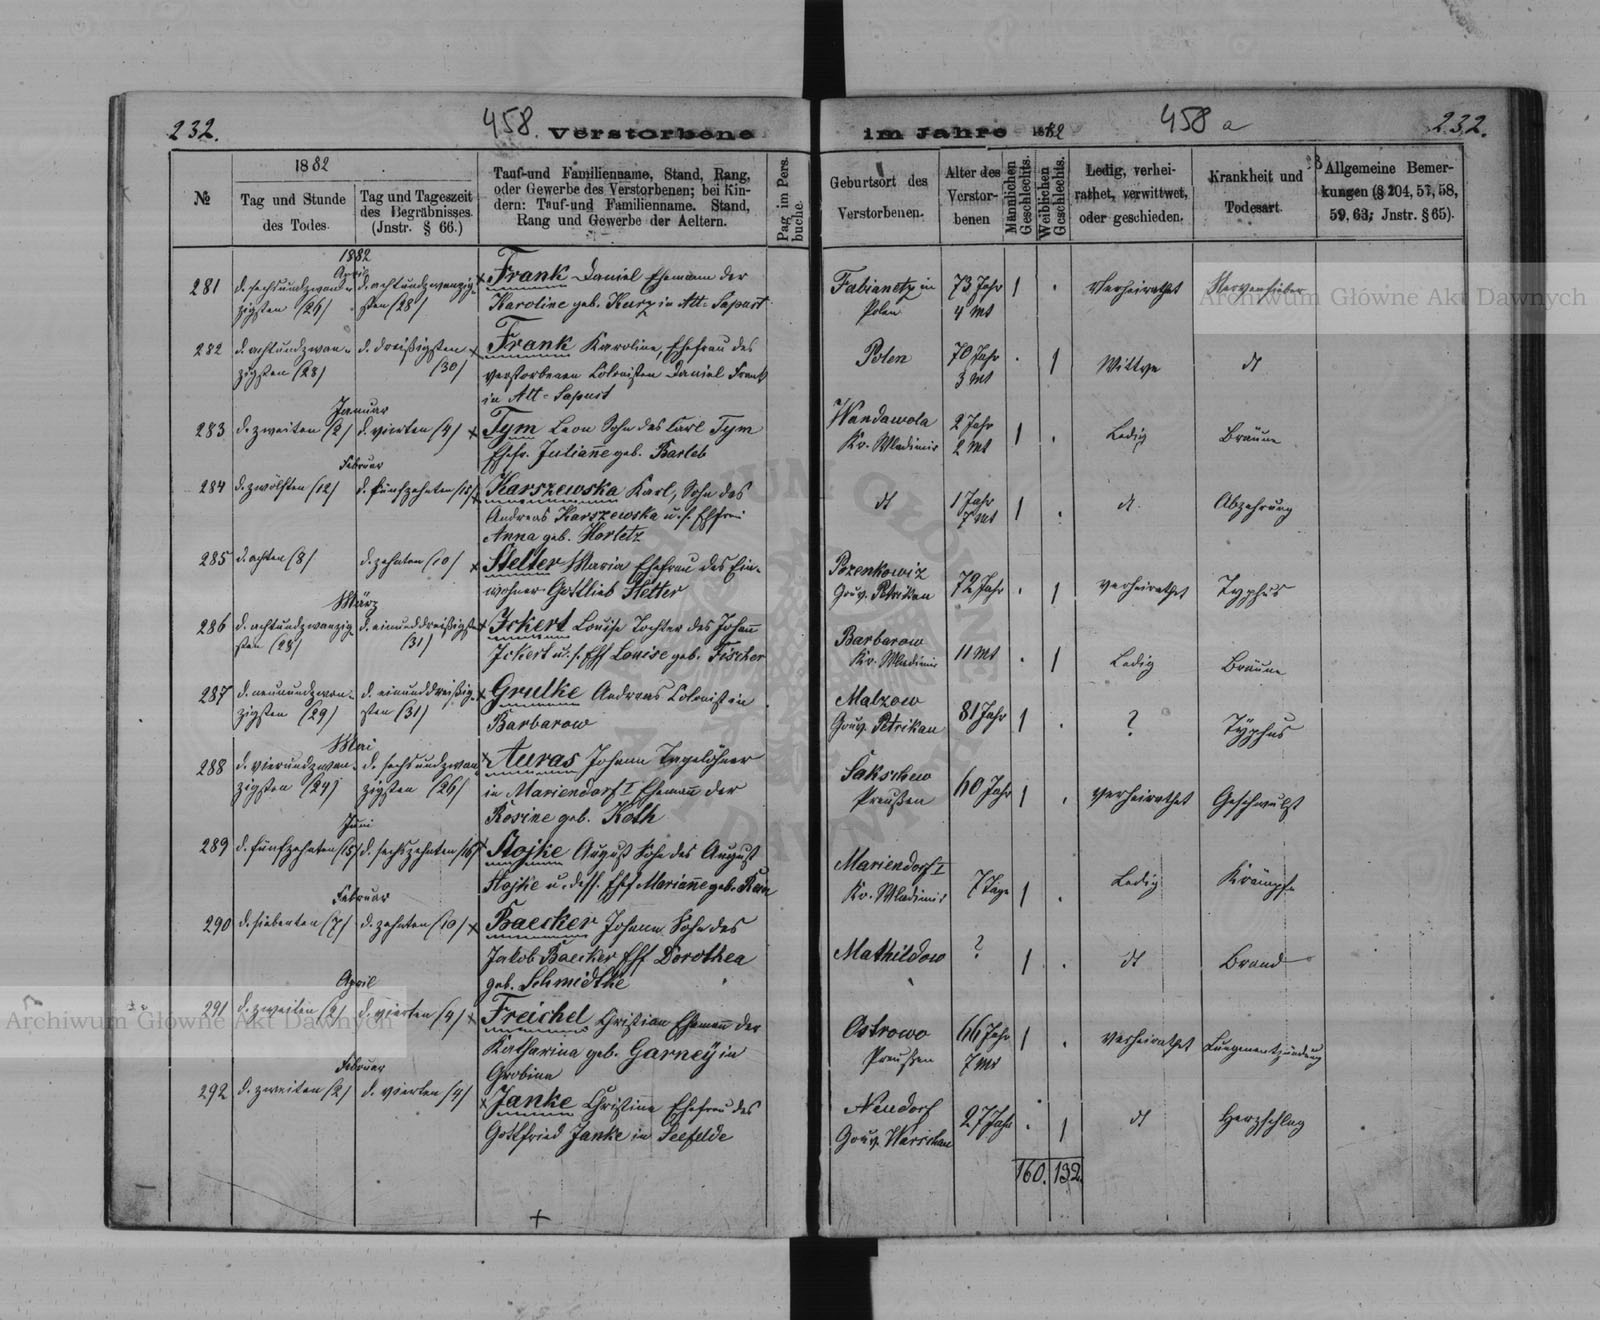 232.
458.
Verstorbene
im Jahre 1882
458 a
232.
№
1882
Tag und Stunde
des Todes.
Tag und Tageszeit
des Begräbnisses.
(Jnstr. § 66.)
Tauf-und Familienname, Stand, Rang,
oder Gewerbe des Verstorbenen; bei Kin-
dern: Tauf-und Familienname. Stand,
Rang und Gewerbe der Aeltern.
Pag im Pers.
buche.
Geburtsort des
Verstorbenen.
Alter des
Verstor-
benen
Männlichen
Geschlechts.
Weiblichen
Geschlechts.
Ledig, verhei-
rathet, verwittwet,
oder geschieden.
Krankheit und
Todesart.
Allgemeine Bemer-
kungen (§ 204, 57, 58,
59, 63; Jnstr. § 65).
1882
April
281 d. sechsundzwan- d. achtundzwanzig- x Frank Daniel Ehemann der Fabianetz in 73 Jahr 1 . Verheirathet Nervenfieber
zigsten /26/ sten /28/ Karoline geb. Kurz in Alt-Sapust Polen 4 Mt
282 d. achtundzwan- d. dreißigsten x Frank Karoline, Ehefrau des Polen 70 Jahr . 1 Wittwe dt
zigsten /28/ /30/ verstorbenen Colonisten Daniel Frank 3 Mt
in Alt-Sapust
Januar
283 d. zweiten /2/ d. vierten /4/ x Tym Leon Sohn des Carl Tym Wandawola 2 Jahr 1 . Ledig Bräune
Ehefr. Julianne geb. Barleb Kr. Wladimir 2 Mt
Februar
284 d. zwölften /12/ d. fünfzehnten /15/ x Karszewska Karl, Sohn des dt 1 Jahr 1 . dt. Abzehrung
Andreas Karszewska u. s. Ehfrau 7 Mt
Anna geb. Hortetz
285 d. achten /8/ d. zehnten /10/ x Stelter Maria Ehefrau des Ein- Pozenkowiz 72 Jahr . 1 verheirathet Typhus
wohner Gottlieb Stelter Gouv. Petrikau
März
286 d. achtundzwanzig- d. einunddreißigsten x Ickert Louise Tochter des Johann Barbarow 11 Mt . 1 Ledig Bräune
sten /28/ /31/ Ickert u. s. Ehf Louise geb. Fischer Kr. Wladimir
287 d. neunundzwan- d. einunddreißig- x Grulke Andreas Colonist in Malzow 81 Jahr 1 . ? Typhus
zigsten /29/ sten /31/ Barbarow Gouv. Petrikau
Mai
288 d. vierundzwan- d. sechsundzwan- x Auras Johann Tagelöhner Sakschew 60 Jahr 1 . verheirathet Geschwulst
zigsten /24/ zigsten /26/ in Mariendorf I Ehemann der Preußen
Rosine geb. Koth
Juni
289 d. fünfzehnten /15/ d. sechszehnten /16/ x Stojke August Sohn des August Mariendorf I 7 Tage 1 . Ledig Krämpfe
Stojke u. dess. Ehf Marianne geb. Kr. Wladimir
Februar
290 d. siebenten /7/ d. zehnten /10/ x Baecker Johann Sohn des Mathildow ? 1 . dt Brand
Jakob Baecker Ehf Dorothea
geb. Schmidtke
April
291 d. zweiten /2/ d. vierten /4/ x Freichel Christian Ehemann der Ostrowo 66 Jahr 1 . Verheirathet Lungenentzündung
Katharina geb. Garney in Preußen 7 Mt
Grobina
Februar
292 d. zweiten /2/ d. vierten /4/ x Janke Christine Ehefrau des Neudorf 27 Jahr . 1 dt Herzschlag
Gottfried Janke in Seefelde Gouv. Warschau
160. 132.
Archiwum Główne Akt Dawnych
Archiwum Główne Akt Dawnych
ARCHIWUM GŁÓWNE AKT DAWNYCH